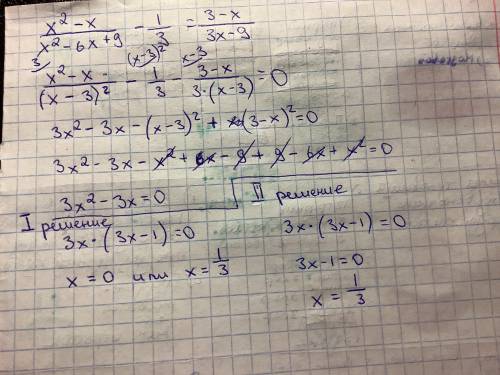 x² - x / x² - 6x + 9 - 1/3 = 3 - x / 3x - 9
3 (x-3)² x-3
x² - x / (x - 3)² - 1/3 - 3 - x / 3·(x-3) = 0
3x² - 3x - (x-3)² + (3-x)² = 0
3x² - 3x - x² + 6x - 9 + 9 - 6x + x² = 0
3x² - 3x = 0
I решение
3x·(3x-1) = 0
x = 0 или x = 1/3
II решение
3x·(3x-1) = 0
3x-1 = 0
x = 1/3